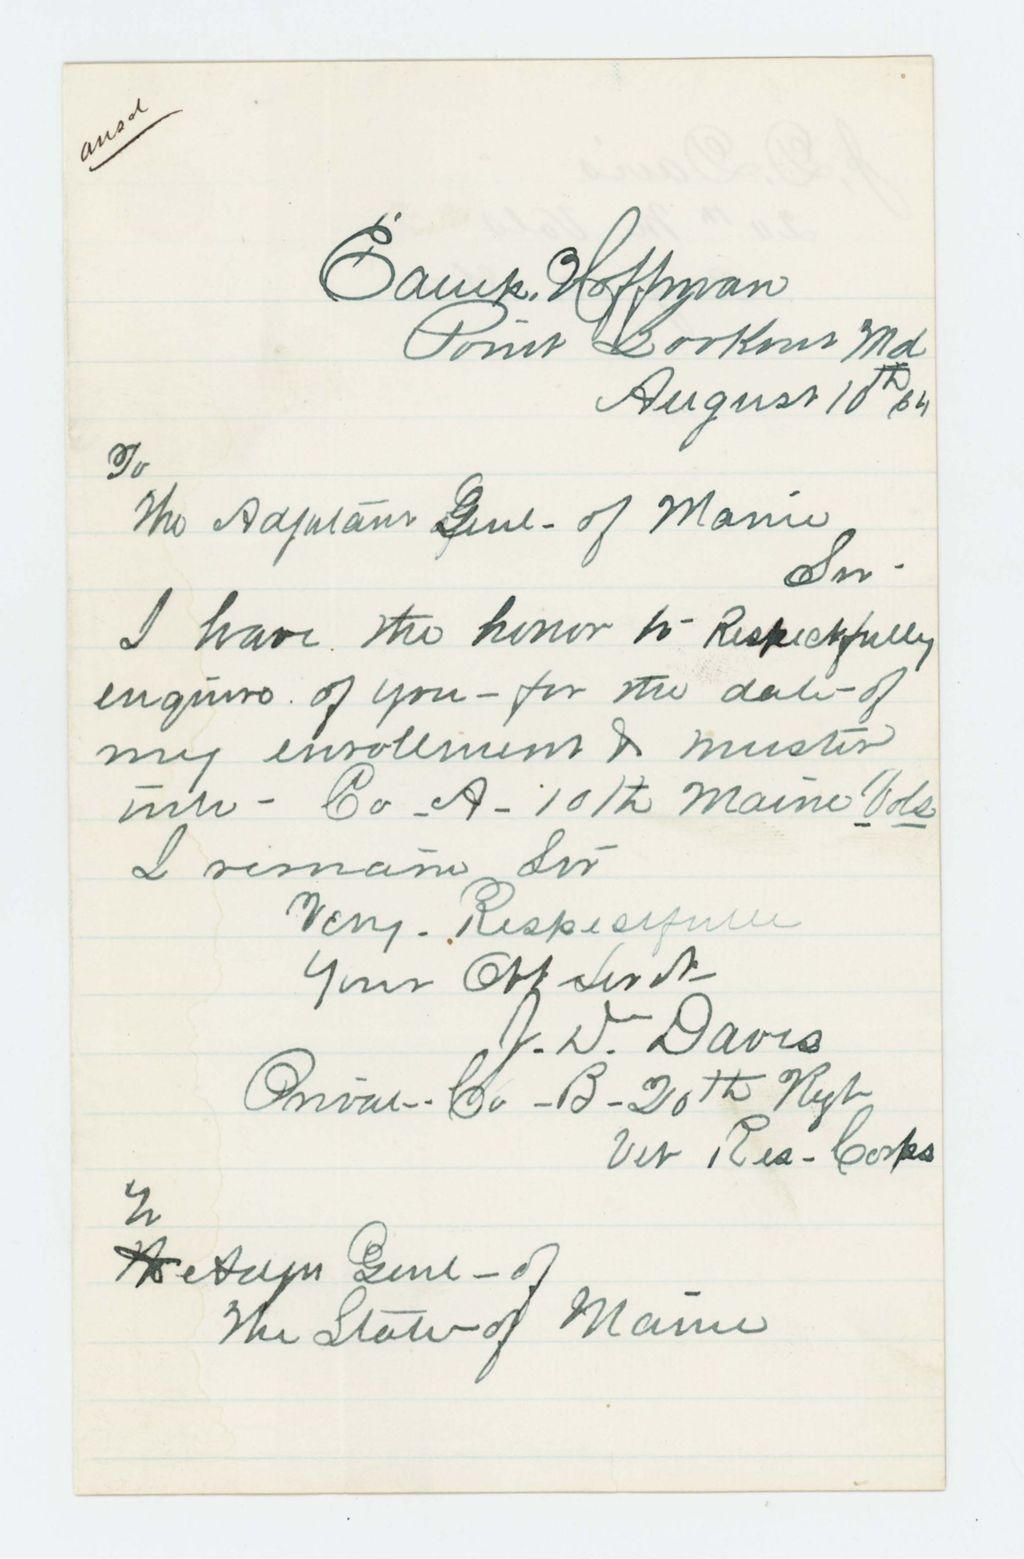 ansd
Camp. Hoffman
Point Lookout Md
August 10th 64
To
The Adjutant Genl - of Maine
Sir -
I have the honor to Respectfully
enquire of you - for the date - of
my enrollment & muster
into - Co - A - 10th Maine Vols
I remain Sir
Very. Respectfully
Your Obt Servt
J. D. Davis
Privat - Co - B - 20th Regt
Vet Res - Corps
To
Adjn Genl - of
The State - of Maine
J. D. Davis
20th Vols